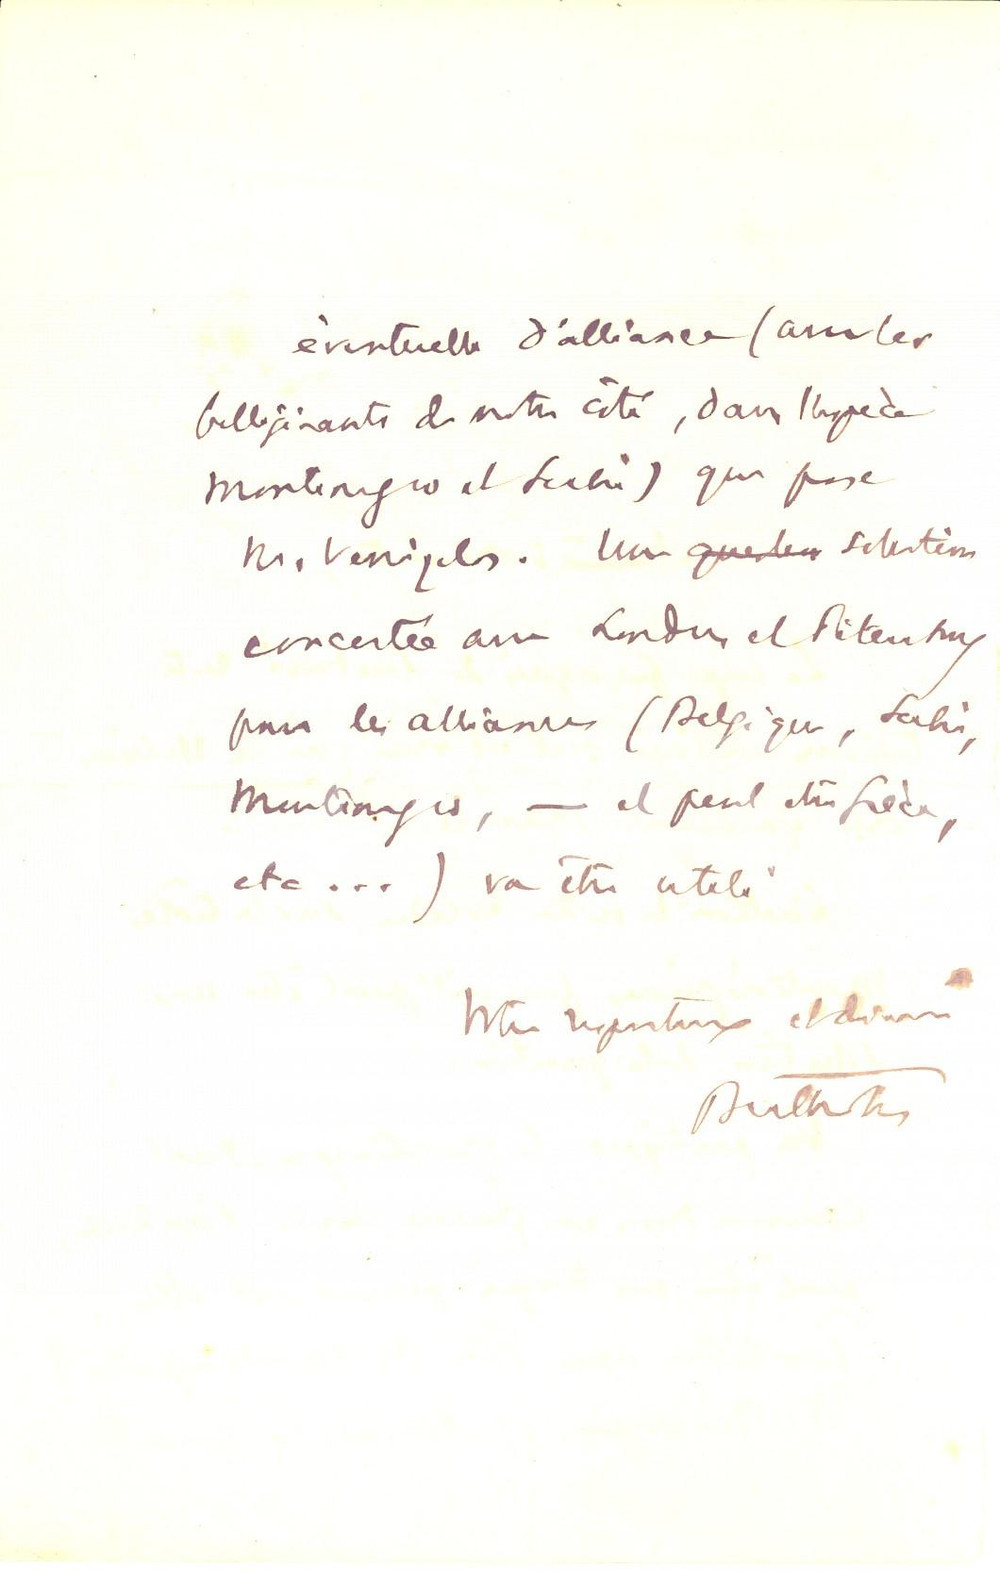 éventuelle d'alliance (avec les
belligérants de notre côté, dans l'espèce
Montenegro et Serbie) que pose
M. Venizelos. Une question solution
concertée avec Londres et Pétersbourg
pour les alliances (Belgique, Serbie,
Montenegro, — et peut être Grèce,
etc ... ) va être utile
Votre respectueux et dévoué
Berthelot